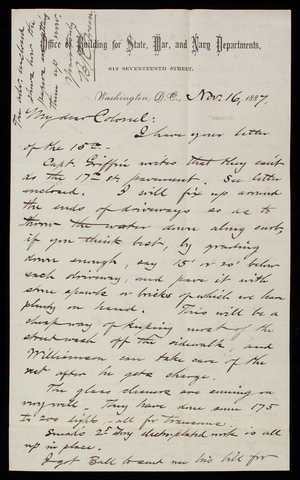 Office of Building for State, War, and Navy Departments,
612 SEVENTEENTH STREET,
Washington, D.C., Nov. 16, 1887.
My dear Colonel:
I have your letter
of the 15th.
Capt. Griffin writes that they can't
do the 17th St. pavement. See letter
enclosed. I will fix up around
the ends of driveways so as to
throw the water down along curb,
if you think best, by grading
down enough, say 15' or 20' below
each driveway, and pave it with
stone spawls or bricks of which we have
plenty on hand. This will be a
cheap way of keeping most of the
street wash off the sidewalk, and
Wilkinson can take care of the
rest after he gets charge.
The glass cleaners are coming on
very well. They have done some 175
to 200 lights – all for transoms.
Small's 2nd story electroplated work is all
up in place.
I got Ball to send me his bill for
The other enclosed
shows how the
papers are
them up now.
Yours truly